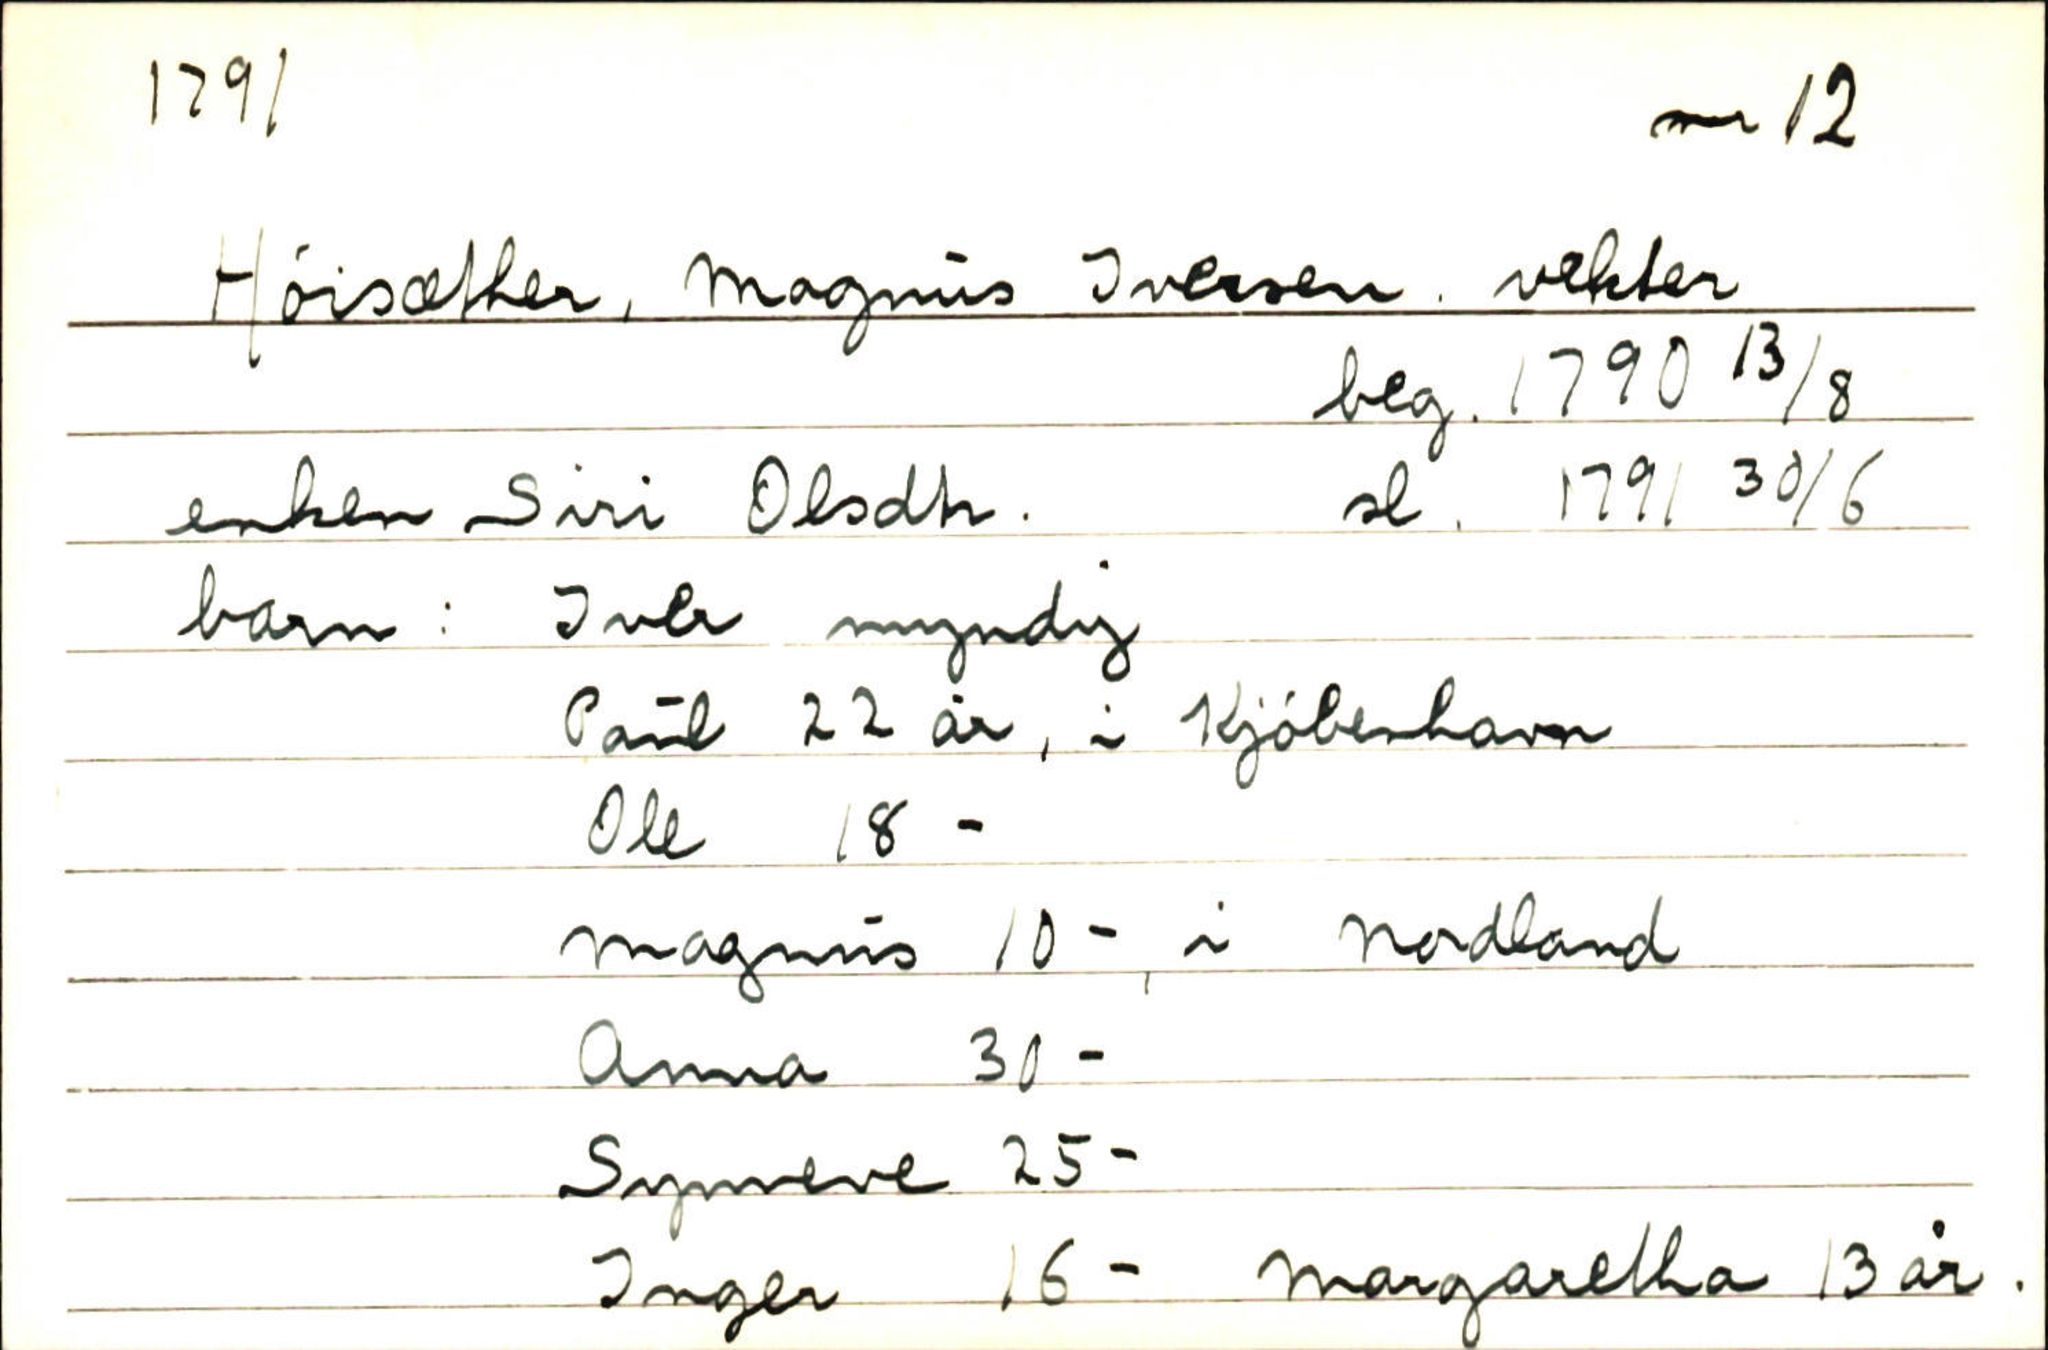 1791 nr 12
Höisæther, Magnus Iversen. vekter
beg. 1790 13/8
enken Siri Olsdtr. sl. 1791 30/6
barn: Iver myndig
Paul 22 år, i Kjöbenhavn
Ole 18 -
Magnus 10 -, i Nordland
Anna 30 -
Synneve 25 -
Inger 16 - Margaretha 13 år.